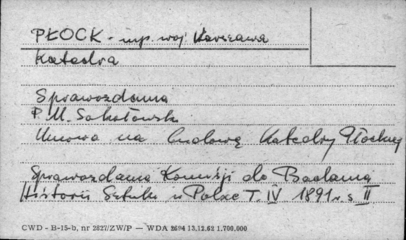 PŁOCK - mp. woj. Warszawa
Katedra
Sprawozdania
P. M. Sokołowski
Umowa na budowę Katedry Płockiej
Sprawozdania Komisji do Badania
Historii Sztuki w Polsce T. IV 1891 r. s. II
CWD - B-15-b, nr 2827/ZW/P — WDA 2694 13.12.62 1.700.000